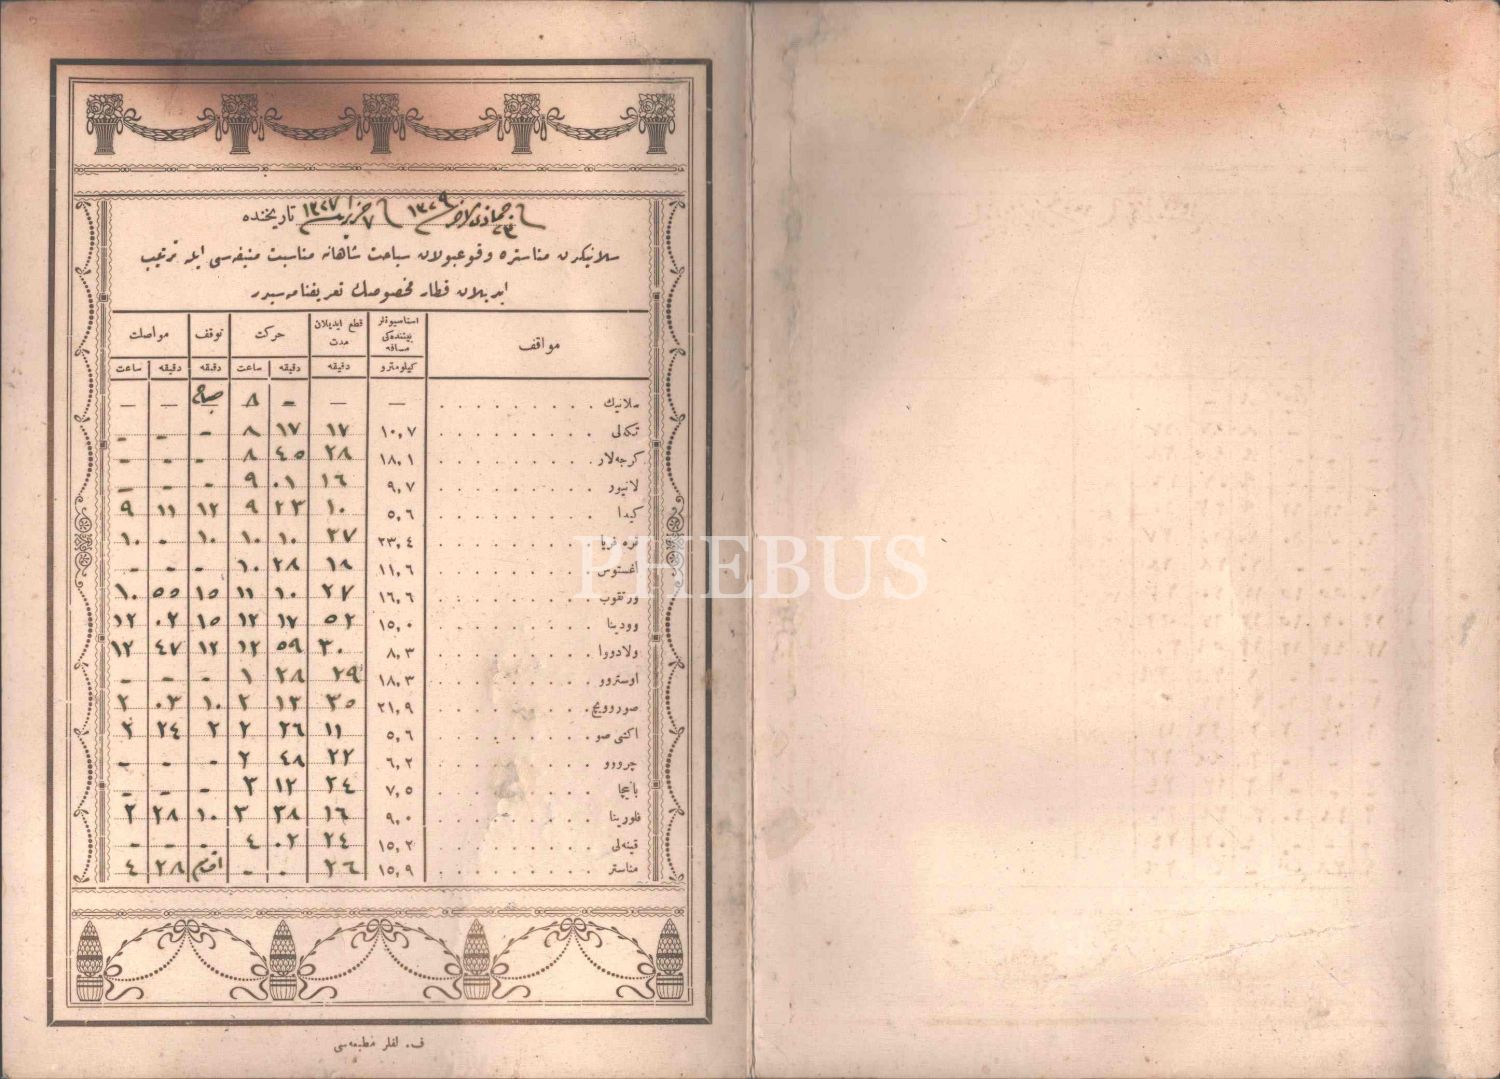 جمادی الآخر ١٣٢٩ ٧ حزیران ١٣٢٧ تاریخنده
سلانیكدن مناستره وقوعبولان سیاحت شاهانه مناسبت منیفه‌سی ایله ترتیب
ایدیلان قطار مخصوصك تعریفنامه سیدر
مواقف استاسیونلر بیننده‌كی مسافه قطع ایدیلان مدت حركت توقف مواصلت
كیلومترو دقیقه دقیقه ساعت دقیقه دقیقه ساعت
سلانیك — — – ٨ صباح — —
تكه‌لی ١٠,٧ ١٧ ١٧ ٨ - - -
كرجه‌لار ١٨,١ ٢٨ ٤٥ ٨ - - -
لانیور ٩,٧ ١٦ ٠١ ٩ - - -
كیدا ٥,٦ ١٠ ٢٣ ٩ ١٢ ١١ ٩
قره فریا ٢٣,٤ ٢٧ ١٠ ١٠ ١٠ - ١٠
اغستوس ١١,٦ ١٨ ٢٨ ١٠ - - -
ورتقوب ١٦,٦ ٢٧ ١٠ ١١ ١٥ ٥٥ ١٠
وودینا ١٥,٠ ٥٢ ١٧ ١٢ ١٥ ٠٢ ١٢
ولادووا ٨,٣ ٣٠ ٥٩ ١٢ ١٢ ٤٧ ١٢
اوستروو ١٨,٣ ٢٩ ٢٨ ١ - - -
صوروویچ ٢١,٩ ٣٥ ١٣ ٢ ١٠ ٠٣ ٢
اكشی صو ٥,٦ ١١ ٢٦ ٢ ٢ ٢٤ ٢
چروو ٦,٢ ٢٢ ٤٨ ٢ - - -
بانیچا ٧,٥ ٢٤ ١٢ ٣ - - -
فلورینا ٩,٠ ١٦ ٣٨ ٣ ١٠ ٢٨ ٣
قینه‌لی ١٥,٢ ٢٤ ٠٢ ٤ - - -
مناستر ١٥,٩ ٢٦ - - اقشام ٢٨ ٤
ف. لفلر مطبعه‌سی
PHEBUS